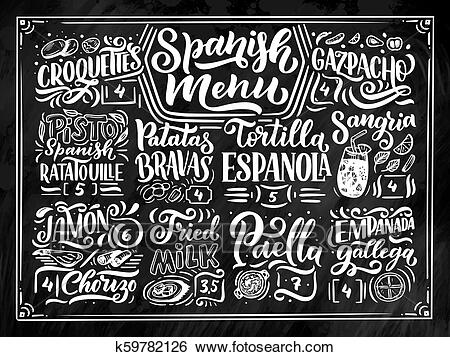 Spanish
Menu
CROQUETTES
4
GAZPACHO
4
PISTO
Spanish
RATATOUILLE
5
Patatas
BRAVAS
4
Tortilla
ESPANOLA
5
Sangria
4
JAMON
6
4
Chorizo
Fried
MILK
3,5
Paella
7
EMPANADA
gallega
4
k59782126 www.fotosearch.com